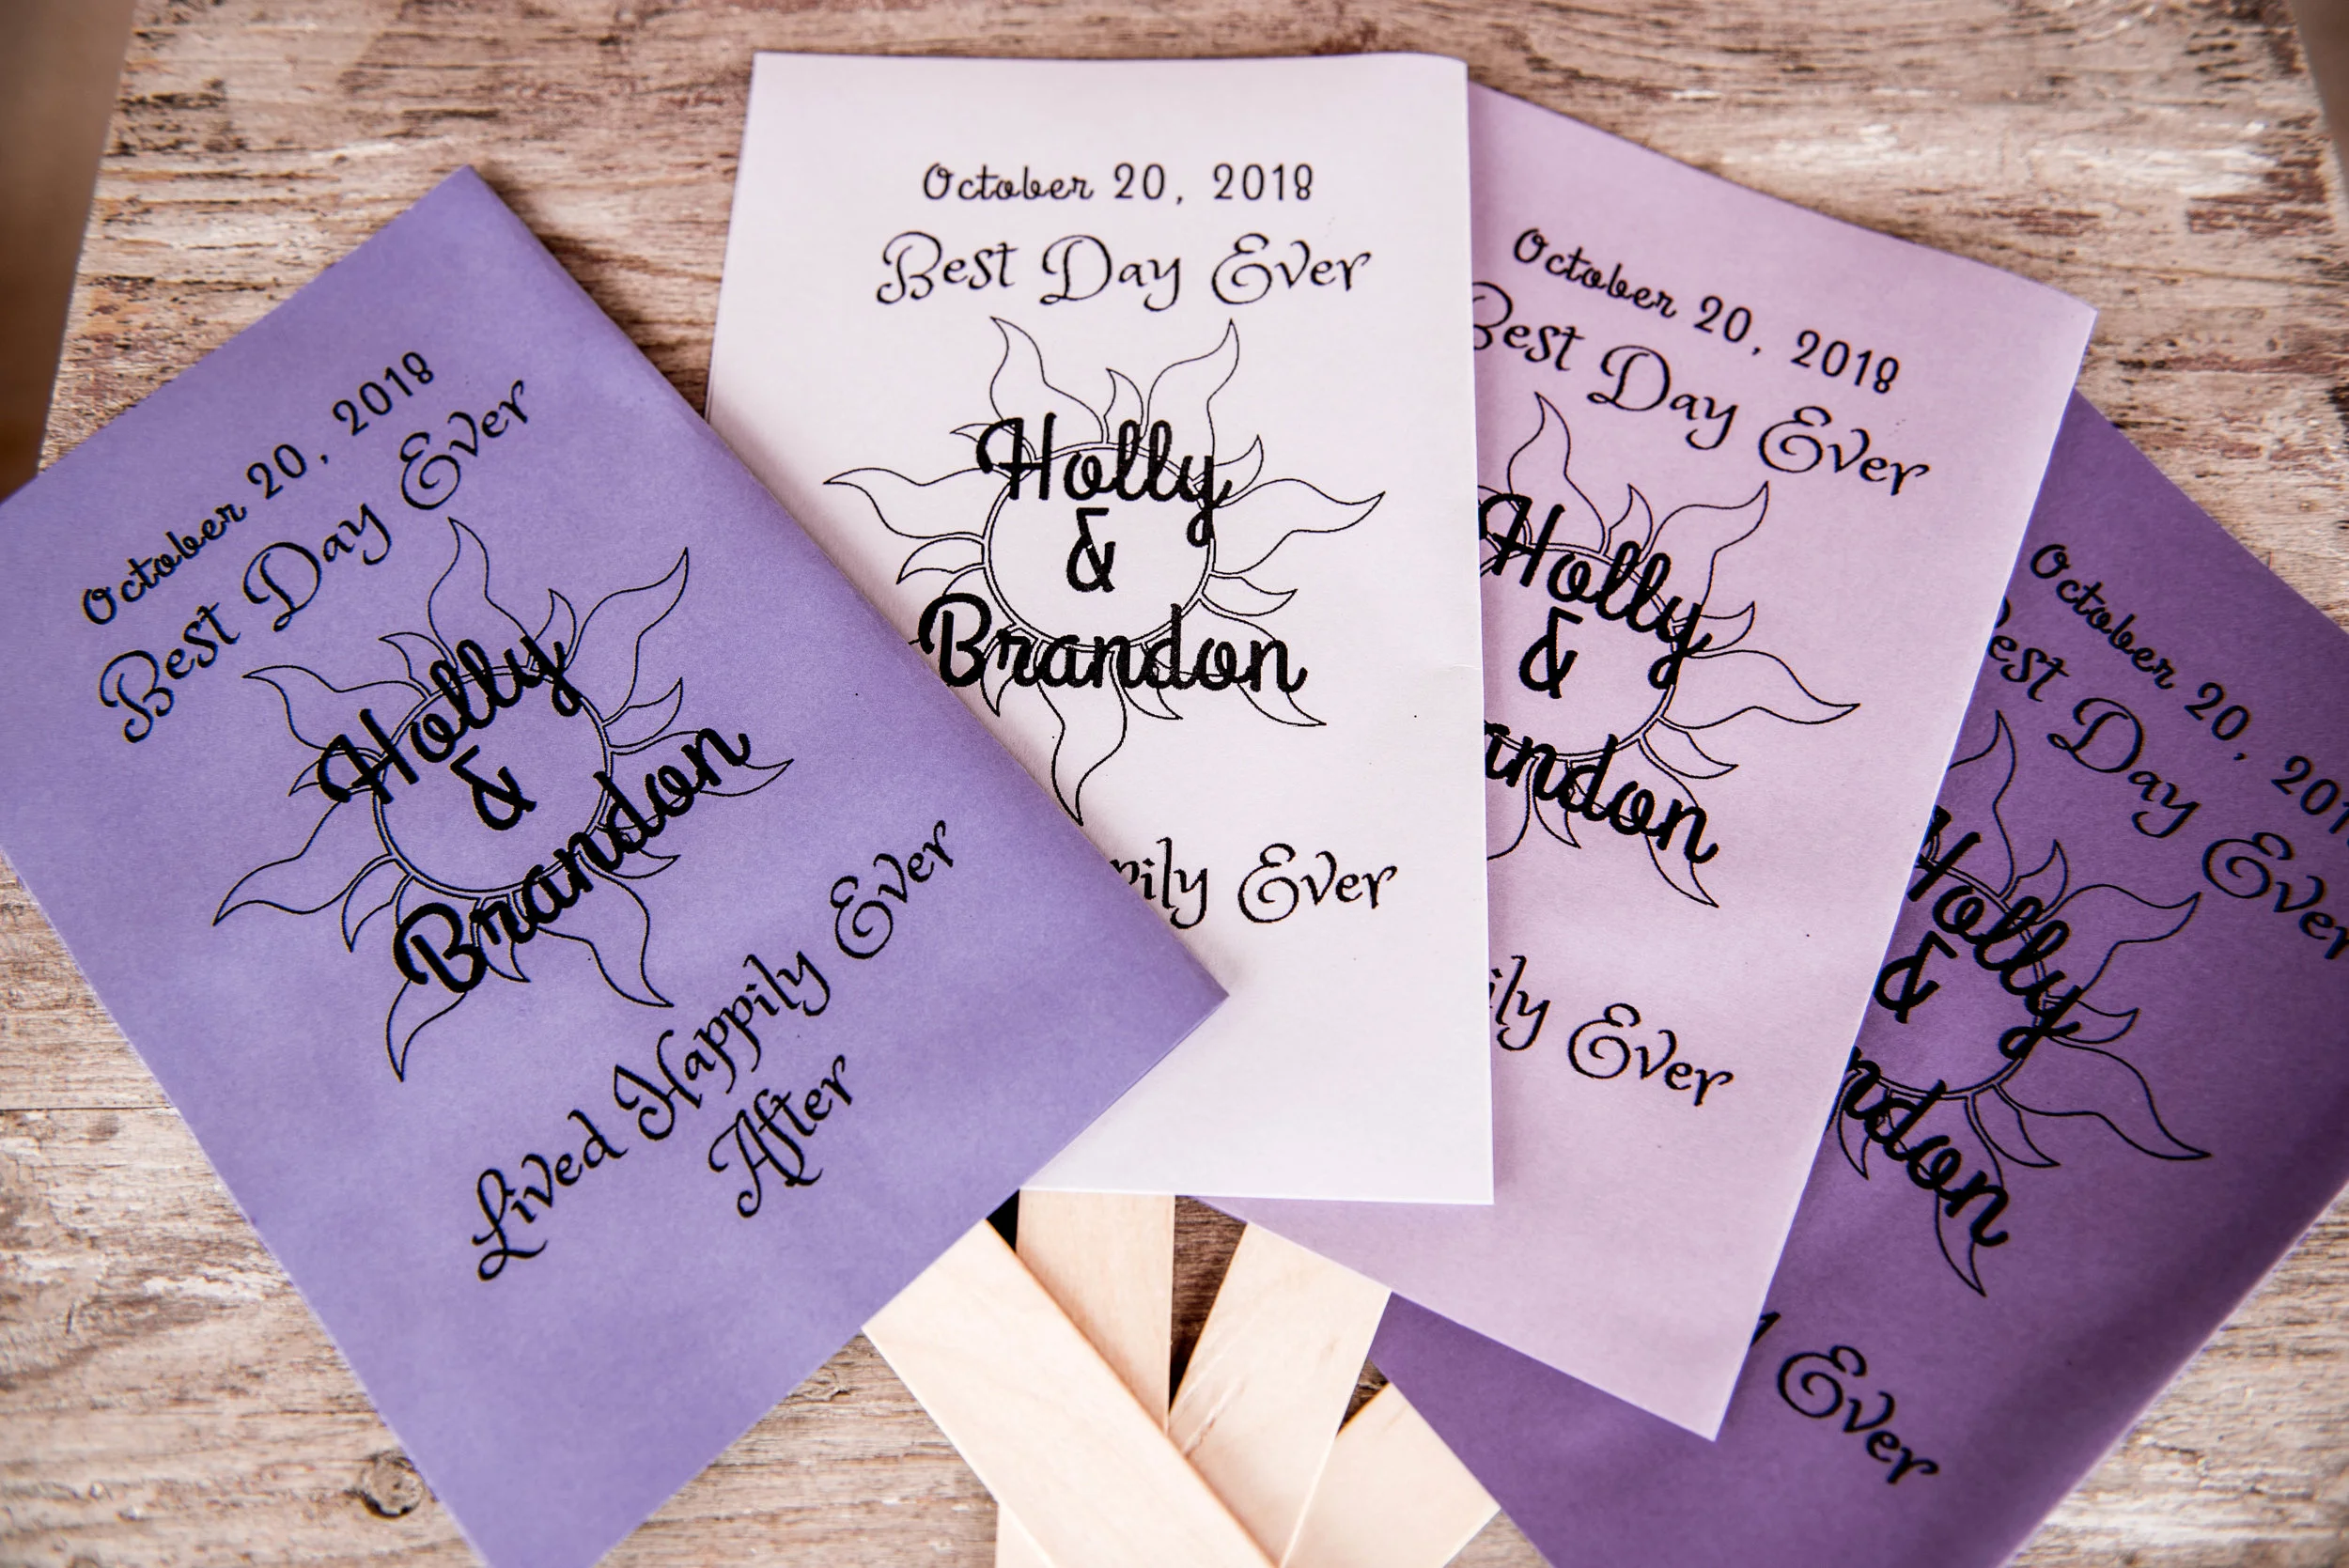 October 20, 2018
Best Day Ever
Holly
&
Brandon
Lived Happily Ever
After
October 20, 2018
Best Day Ever
Holly
&
Brandon
pily Ever
October 20, 2018
Best Day Ever
Holly
&
andon
ily Ever
October 20, 201
est Day Ever
Holly
&
ndon
Ever